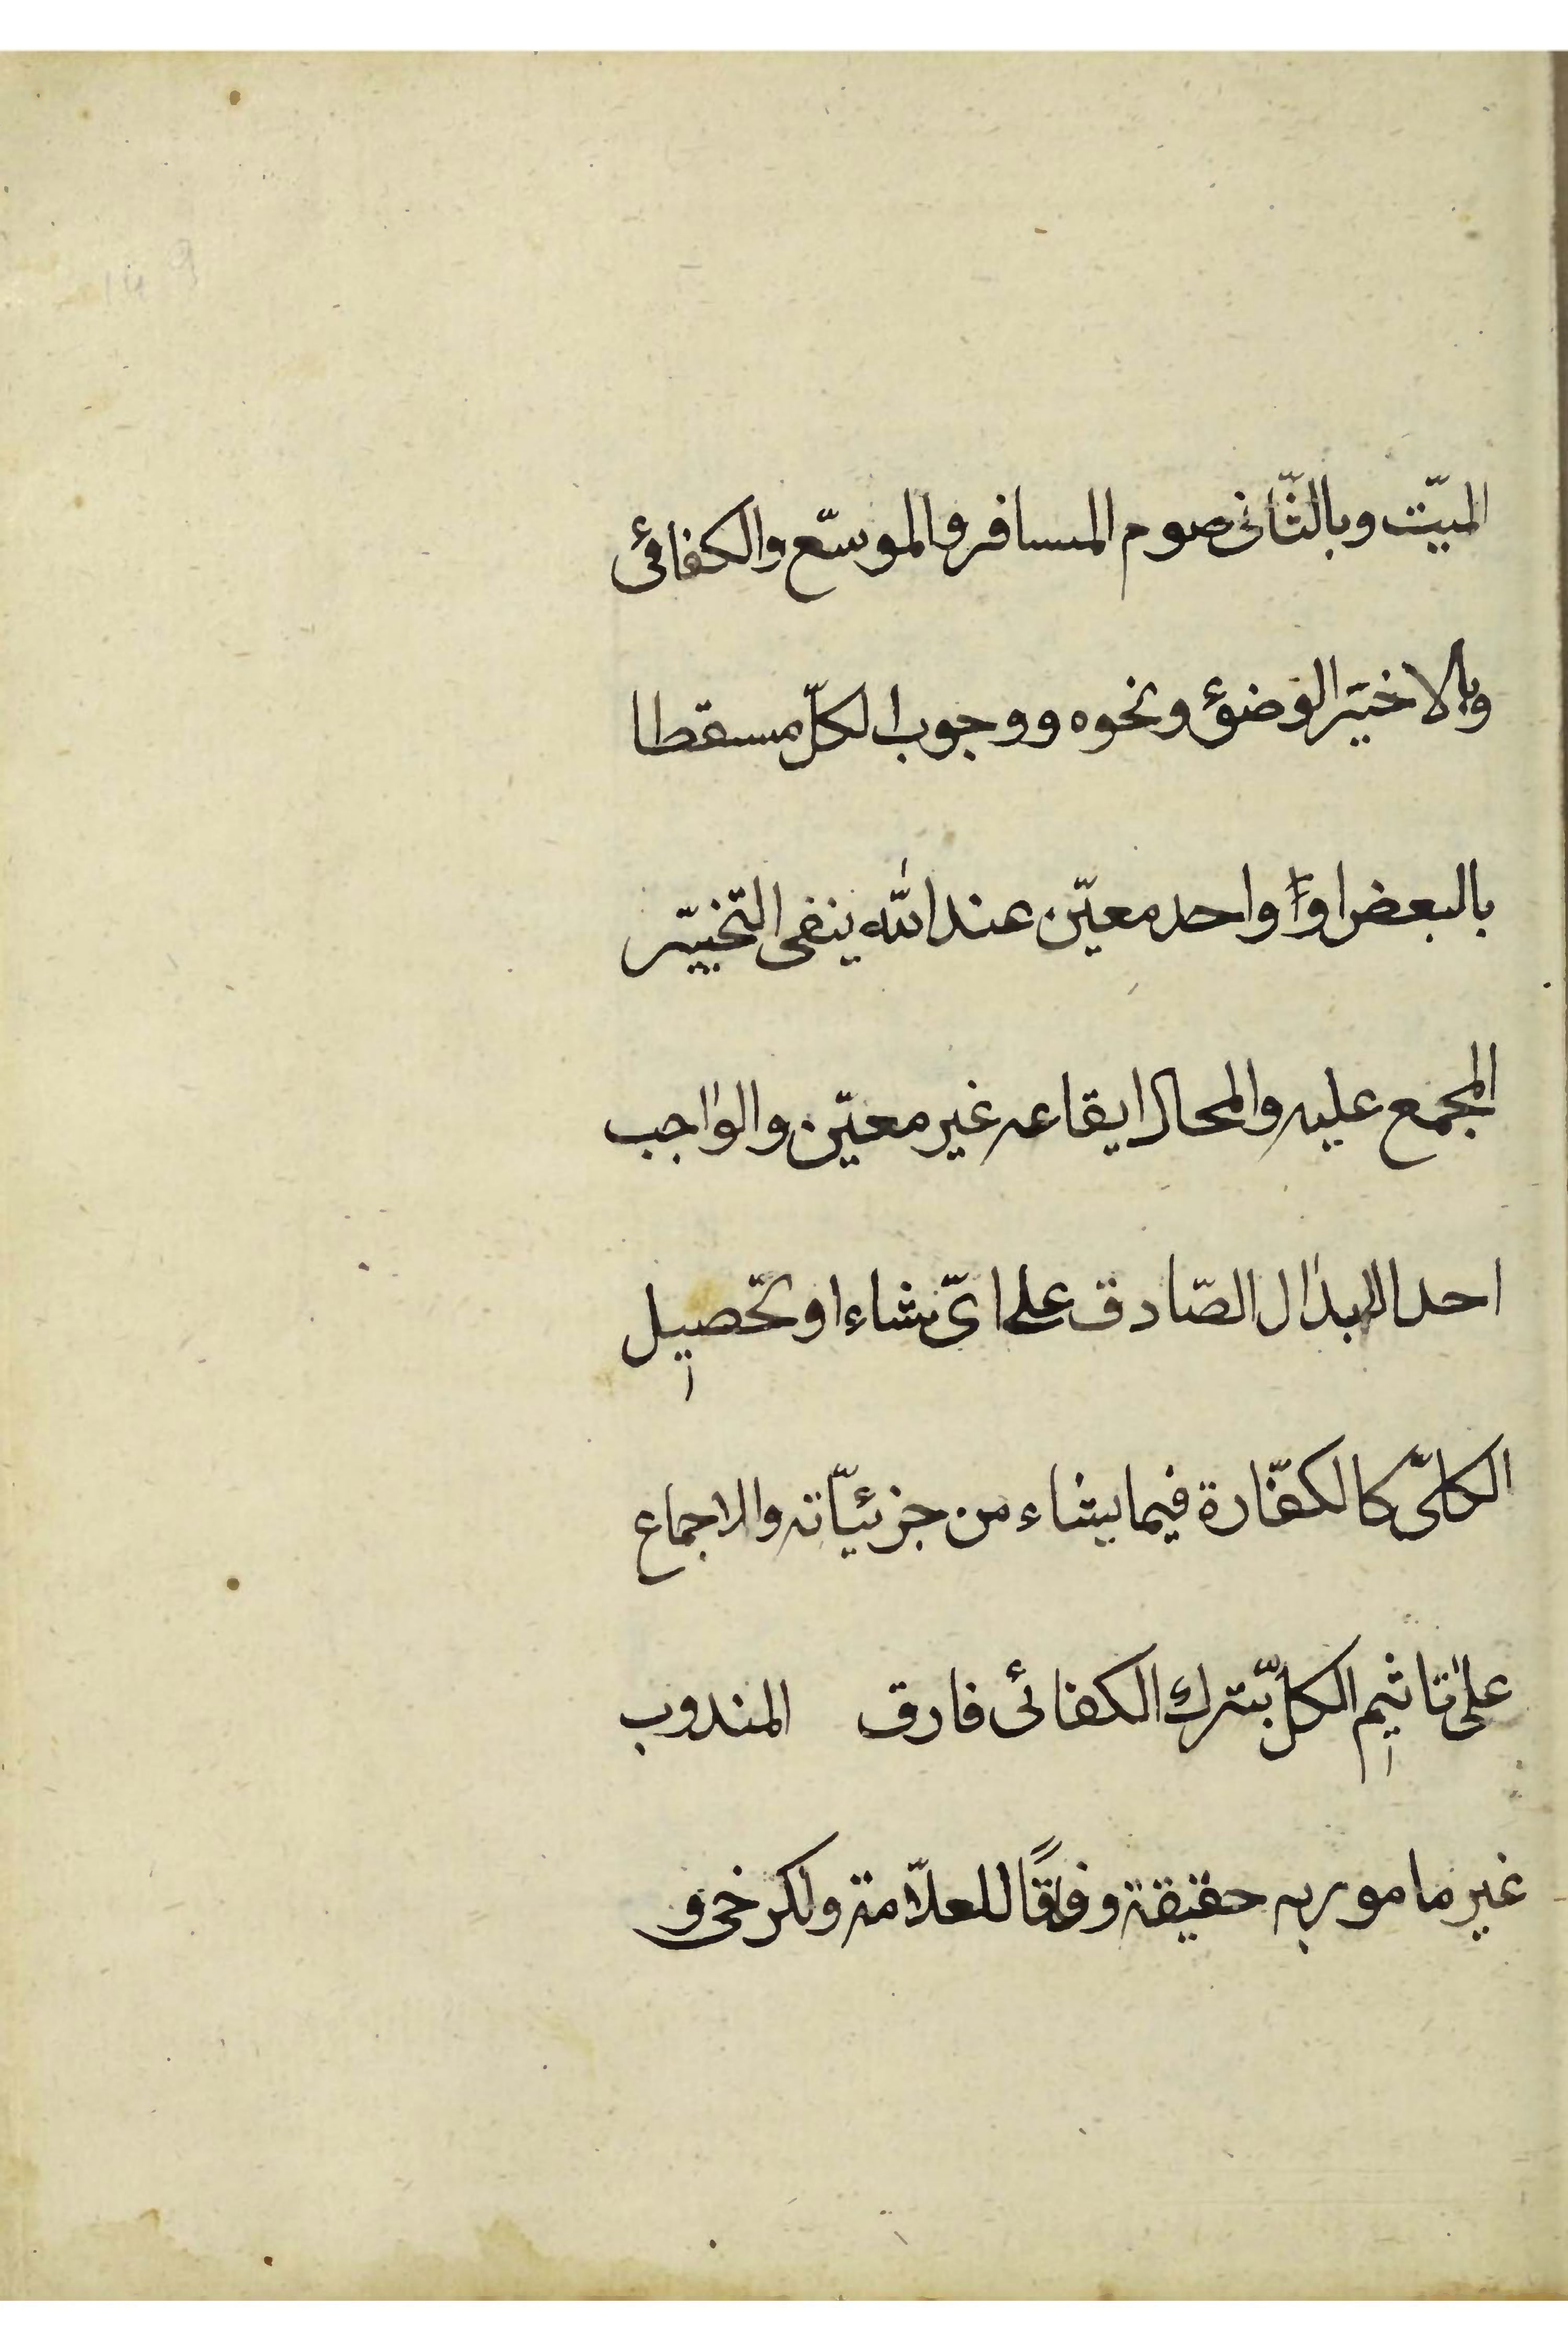 الميّت وبالثّانى صوم المسافر والموسّع والكفائى
وبالاخير الوضوء ونحوه ووجوب الكلّ مسقطا
بالبعض او واحد معيّن عند الله ينفى التخيير
المجمع عليه والمحال ايقاعه غير معيّن والواجب
احد الابدال الصّادق على اىّ شاء او تحصيل
الكلىّ كالكفّارة فيما يشاء من جزئيّاته والاجماع
على تاثيم الكلّ بترك الكفائى فارق المندوب
غير مامور به حقيقة وفاقًا للعلاّمة ولكرخى و